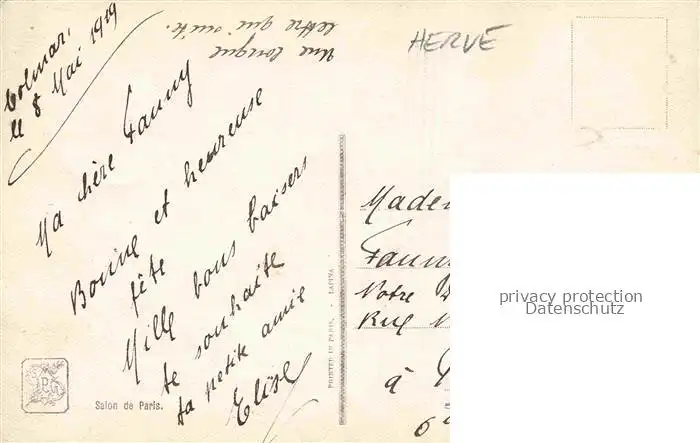 Colmar,
le 8 Mai 1919
Ma chère Fanny
Bonne et heureuse
fête
Mille bons baisers
te souhaite
ta petite amie
Elise
Une longue
lettre qui suite.
HERVÉ
Salon de Paris.
PRINTED IN PARIS. - LAPINA
Madem
Fann
Notre D
Rue N
à
privacy protection
Datenschutz